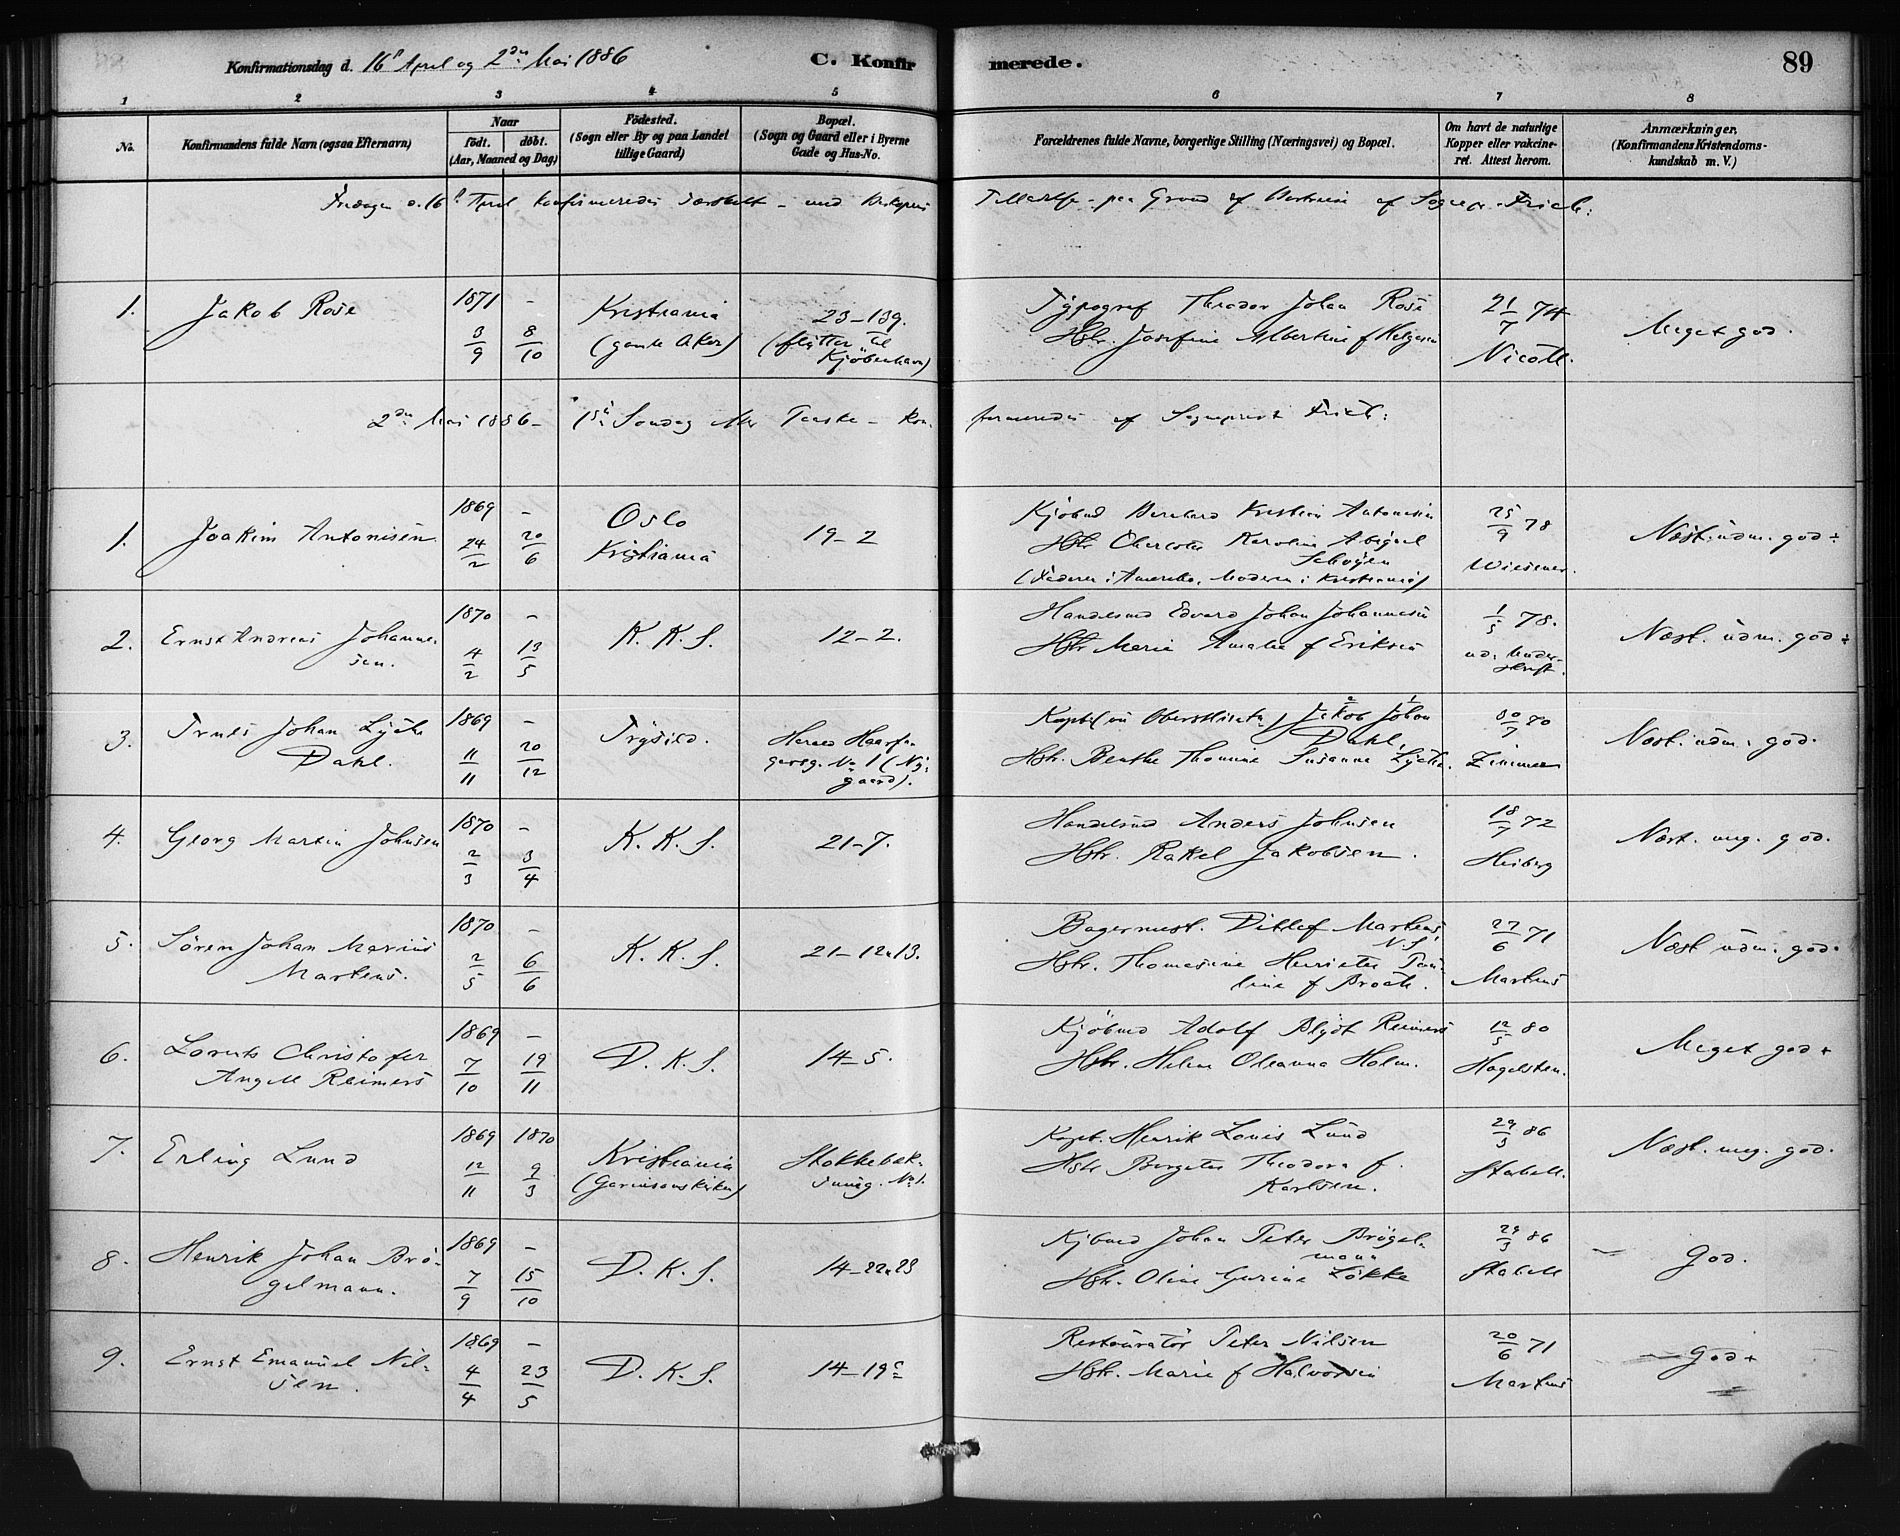 Konfirmationsdag d. 16 April og 2den Mai 1886
C. Konfirmerede.
89
1 2 3 4 5 6 7 8
No.
Konfirmandens fulde Navn (ogsaa Efternavn)
Naar
födt. döbt.
(Aar, Maaned og Dag)
Födested.
(Sogn eller By og paa Landet
tillige Gaard)
Bopæl.
(Sogn og Gaard eller i Byerne
Gade og Hus-No.
Forældrenes fulde Navne, borgerlige Stilling (Næringsvei) og Bopæl.
Om havt de naturlige
Kopper eller vakcine-
ret. Attest herom.
Anmærkninger.
(Konfirmandens Kristendoms-
kundskab m. V.)
Fredagen d. 16 April konfirmeredes særskilt - med Biskopens
Tilladelse - paa Grund af af Sognepr. Frich:
1.
Jakob Rose
1871 -
3/9 8/10
Kristiania
(gamle Aker)
23-139.
(flytter til
Kjøbenhavn)
Typograf Theodor Johan Rose
Hstr. Josefine Albertine f Helgesen
21/7 74
Nicoll.
Meget god.
2den Mai 1886 - 1ste Søndag efter Paaske - kon-
firmeredes af Sogneprest Frich:
1.
Joakim Antonisen
1869 -
24/2 20/6
Oslo
Kristiania
19-2
Kjøbmd Bernhard Kristian Antonisen
Hstr Charlotte Karoline Abigael
(Faderen i Amerika, Moderen i Kristiania)
25/9 78
Wiesener.
Næst. udm. god ÷
2.
Ernst Andreas Johanne-
sen.
1870 -
4/2 13/5
K. K. S.
12-2.
Handelsmd Edvard Johan Johannesen
Hstr Marie Amalie f Eriksen
1/5 78.
ud. Under-
skrift.
Næst. udm. god ÷
3.
Truls Johan Lyche
Dahl.
1869 -
11/11 20/12
Trysild.
Harald Haarfa-
gersg. No 1 (Ny-
gaard).
Kaptl (nu Oberstlieutn) Jakob Johan
Dahl,
Hstr. Benthe Thomine Susanne Lyche.
30/7 80
Zimmer
Næst. udm. god.
4.
Georg Martin Johnsen
1870 -
2/3 3/4
K. K. S.
21-7.
Handelsmd Anders Johnsen
Hstr. Rakel Jakobsen.
18/7 72
Heiberg
Næst. meg. god.
5.
Søren Johan Marius
Martens.
1870 -
2/5 6/6
K. K. S.
21-12 13.
Bagermest. Ditlef Martens,
Hstr. Thomasine Henriette Pau-
line f Broch.
27/6 71
Martens
Næst udm. god.
6.
Lorents Christofer
Angell Reimers
1869 -
7/10 19/11
D. K. S.
14-5.
Kjøbmd Adolf Blydt Reimers
Hstr. Helene Oleanna Holm.
12/5 80
Hagelsten.
Meget god +
7.
Erling Lund
1869 1870
12/11 9/3
Kristiania
(Garnisonskirken)
Stokkebæk-
smug. No 1.
Kapt. Henrik Louis Lund
Hstr Bergitte Theodora f.
Karlsen.
29/3 86
Stabell.
Næst. meg. god.
8.
Henrik Johan Brö-
gelmann.
1869 -
7/9 15/10
D. K. S.
14-22 23
Kjbmd Johan Peter Brögel-
mann
Hstr. Oline Gurine Løkke
29/3 86
Stabell
God.
9.
Ernst Emanuel Nil-
sen.
1869 -
4/4 23/5
D. K. S.
14-19c
Restauratør Peter Nilsen
Hstr. Marie f Halvorsen
20/6 71
Martens
God +